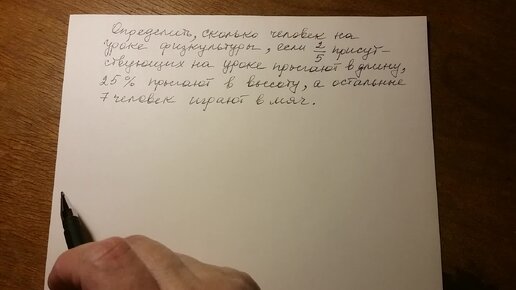 Определить, сколько человек на
уроке физкультуры, если 2/5 присут-
ствующих на уроке прыгают в длину,
25% прыгают в высоту, а остальные
7 человек играют в мяч.